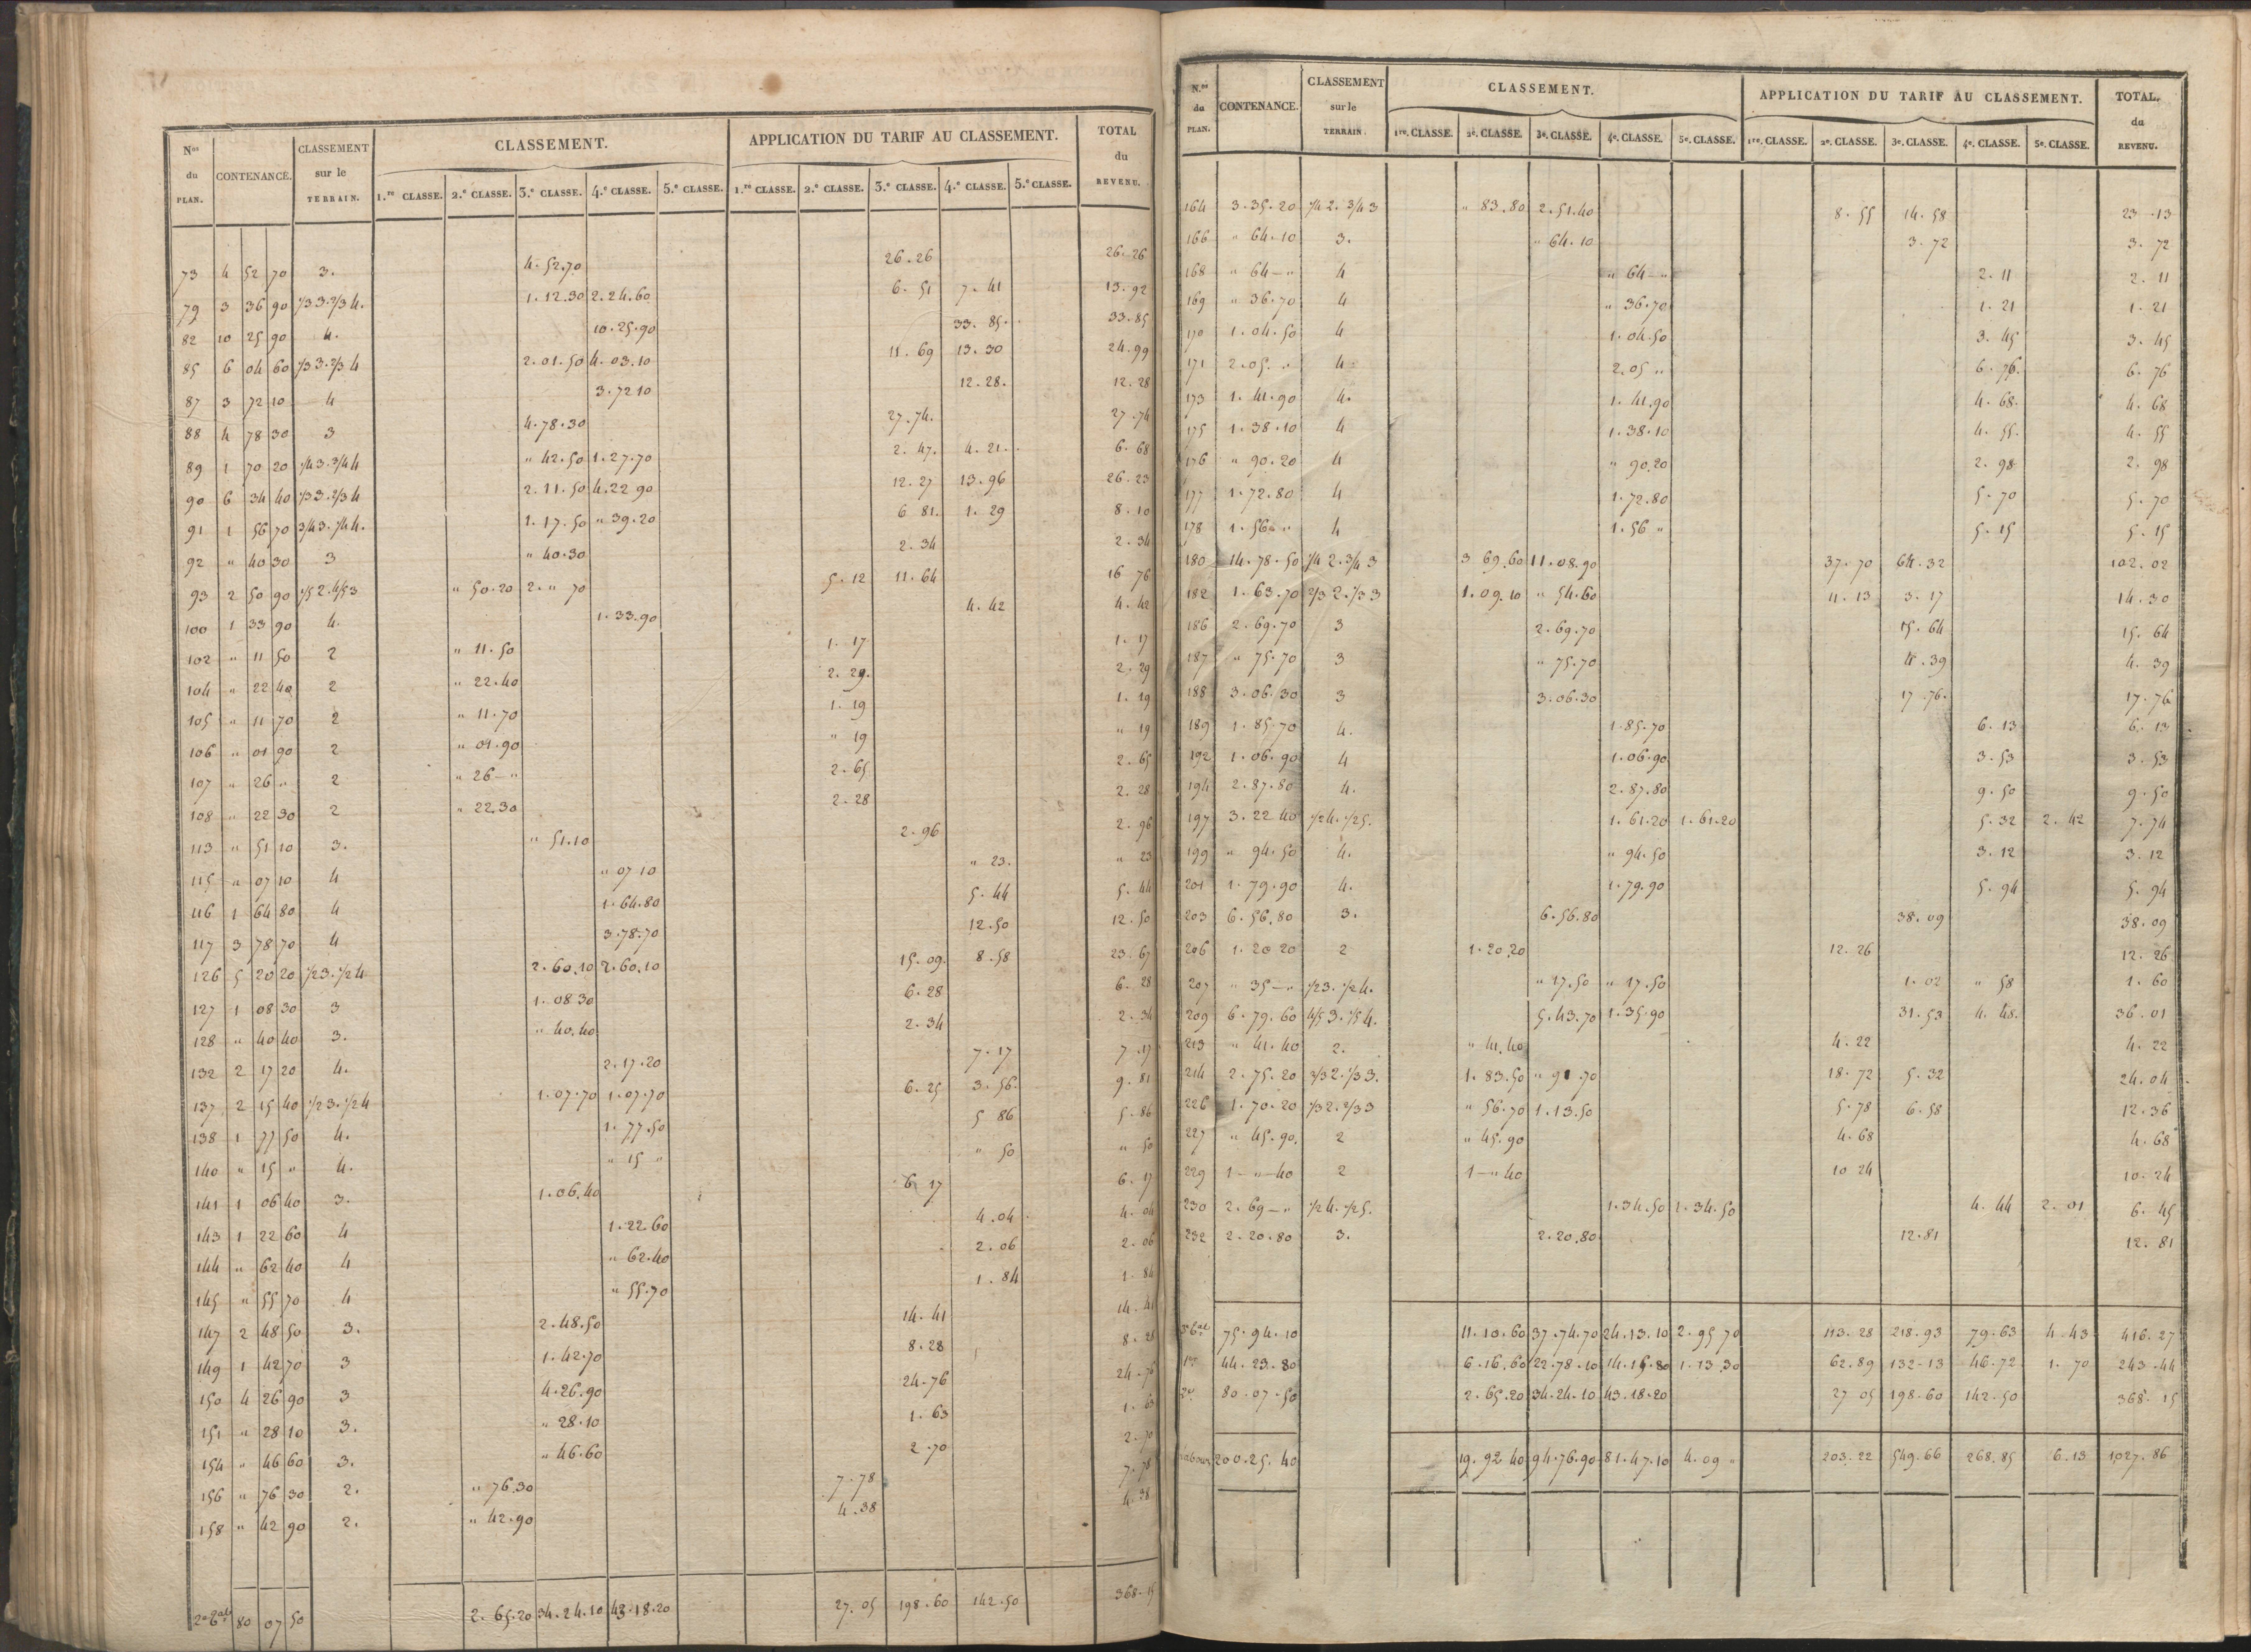 Nos du PLAN. CONTENANCE. CLASSEMENT sur le TERRAIN. CLASSEMENT. APPLICATION DU TARIF AU CLASSEMENT. TOTAL du REVENU.
1.re CLASSE. 2.e CLASSE. 3.e CLASSE. 4.e CLASSE. 5.e CLASSE. 1.re CLASSE. 2.e CLASSE. 3.e CLASSE. 4.e CLASSE. 5.e CLASSE.
73 4 52 70 3. 4.52.70 26.26 26.26
79 3 36 90 1/3 3. 2/3 4. 1.12.30 2.24.60 6.51 7.41 13.92
82 10 25 90 4. 10.25.90 33.85. 33.85
85 6 04 60 1/3 3. 2/3 4 2.01.50 4.03.10 11.69 13.30 24.99
87 3 72 10 4 3.72 10 12.28. 12.28
88 4 78 30 3 4.78.30 27.74. 27.74
89 1 70 20 1/4 3. 3/4 4 " 42.50 1.27.70 2.47. 4.21. 6.68
90 6 34 40 1/3 3. 2/3 4 2.11.50 4.22 90 12.27 13.96 26.23
91 1 56 70 3/4 3. 1/4 4. 1.17.50 " 39.20 6 81. 1.29 8.10
92 " 40 30 3 " 40.30 2.34 2.34
93 2 50 90 1/5 2. 4/5 3 " 50.20 2. " 70 5.12 11.64 16 76
100 1 33 90 4. 1.33.90 4.42 4.42
102 " 11 50 2 " 11.50 1.17 1.17
104 " 22 40 2 " 22.40 2.29. 2.29
105 " 11 70 2 " 11.70 1.19 1.19
106 " 01 90 2 " 01.90 " 19 " 19
107 " 26 " 2 " 26 — " 2.65 2.65
108 " 22 30 2 " 22.30 2.28 2.28
113 " 51 10 3. " 51.10 2.96 2.96
115 " 07 10 4 " 07 10 " 23. " 23
116 1 64 80 4 1.64.80 5.44 5.44
117 3 78 70 4 3.78.70 12.50 12.50
126 5 20 20 1/2 3. 1/2 4 2.60.10 2.60.10 15.09. 8.58 23.67
127 1 08 30 3 1.08 30 6.28 6.28
128 " 40 40 3. " 40.40 2.34 2.34
132 2 17 20 4. 2.17.20 7.17 7.17
137 2 15 40 1/2 3. 1/2 4 1.07.70 1.07.70 6.25 3.56. 9.81
138 1 77 50 4. 1.77.50 5 86 5.86
140 " 15 " 4. " 15 " " 50 " 50
141 1 06 40 3. 1.06.40 6 17 6.17
143 1 22 60 4 1.22.60 4.04 4.04
144 " 62 40 4 " 62.40 2.06 2.06
145 " 55 70 4 " 55.70 1.84 1.84
147 2 48 50 3. 2.48.50 14.41 14.41
149 1 42 70 3 1.42.70 8.28 8.28
150 4 26 90 3 4.26.90 24.76 24.76
151 " 28 10 3. " 28.10 1.63 1.63
154 " 46 60 3. " 46.60 2.70 2.70
156 " 76 30 2. " 76.30 7.78 7.78
158 " 42 90 2. " 42.90 4.38 4.38
80 07 50 2.65.20 34.24.10 43.18.20 27.05 198.60 142.50 368.15
N.os du PLAN. CONTENANCE. CLASSEMENT sur le TERRAIN. CLASSEMENT. APPLICATION DU TARIF AU CLASSEMENT. TOTAL. du REVENU.
1re. CLASSE. 2e. CLASSE. 3e. CLASSE. 4e. CLASSE. 5e. CLASSE. 1re. CLASSE. 2e. CLASSE. 3e. CLASSE. 4e. CLASSE. 5e. CLASSE.
164 3.35.20 1/4 2. 3/4 3 " 83.80 2.51.40 8.55 14.58 23.13
166 " 64.10 3. " 64.10 3.72 3.72
168 " 64 — " 4 " 64 — " 2.11 2.11
169 " 36.70 4 " 36.70 1.21 1.21
170 1.04.50 4 1.04.50 3.45 3.45
171 2.05. " 4 2.05 " 6.76. 6.76
173 1.41.90 4. 1.41.90 4.68. 4.68
175 1.38.10 4 1.38.10 4.55. 4.55
176 " 90.20 4 " 90.20 2.98 2.98
177 1.72.80 4 1.72.80 5.70 5.70
178 1.56 " 4 1.56 " 5.15 5.15
180 14.78.50 1/4 2. 3/4 3 3 69.60 11.08.90 37.70 64.32 102.02
182 1.63.70 2/3 2. 1/3 3 1.09.10 " 54.60 11.13 3.17 14.30
186 2.69.70 3 2.69.70 15.64 15.64
187 " 75.70 3 " 75.70 4.39 4.39
188 3.06.30 3 3.06.30 17.76. 17.76
189 1.85.70 4. 1.85.70 6.13 6.13
192 1.06.90 4 1.06.90 3.53 3.53
194 2.87.80 4. 2.87.80 9.50 9.50
197 3.22 40 1/2 4. 1/2 5. 1.61.20 1.61.20 5.32 2.42 7.74
199 " 94.50 4. " 94.50 3.12 3.12
201 1.79.90 4. 1.79.90 5.94 5.94
203 6.56.80 3. 6.56.80 38.09 38.09
206 1.20 20 2 1.20.20 12.26 12.26
207 " 35 — " 1/2 3. 1/2 4. " 17.50 " 17.50 1.02 " 58 1.60
209 6.79.60 4/5 3. 1/5 4. 5.43.70 1.35.90 31.53 4.48. 36.01
213 " 41.40 2. " 41.40 4.22 4.22
214 2.75.20 2/3 2. 1/3 3. 1.83.50 " 91.70 18.72 5.32 24.04
226 1.70.20 1/3 2. 2/3 3 " 56.70 1.13.50 5.78 6.58 12.36
227 " 45.90. 2 " 45.90 4.68 4.68
229 1 — " — 40 2 1 — " 40 10 24 10.24
230 2.69 — " 1/2 4. 1/2 5. 1.34.50 1.34.50 4.44 2.01 6.45
232 2.20.80 3. 2.20.80 12.81 12.81
75.94.10 11.10.60 37.74.70 24.13.10 2.95 70 113.28 218.93 79.63 4.43 416.27
1er 44.23.80 6.16.60 22.78.10 14.15.80 1.13.30 62.89 132.13 46.72 1.70 243.44
2e 80.07.50 2.65.20 34.24.10 43.18.20 27 05 198.60 142.50 368.15
200.25.40 19.92 40 94.76.90 81.47.10 4.09 " 203.22 549.66 268.85 6.13 1027.86